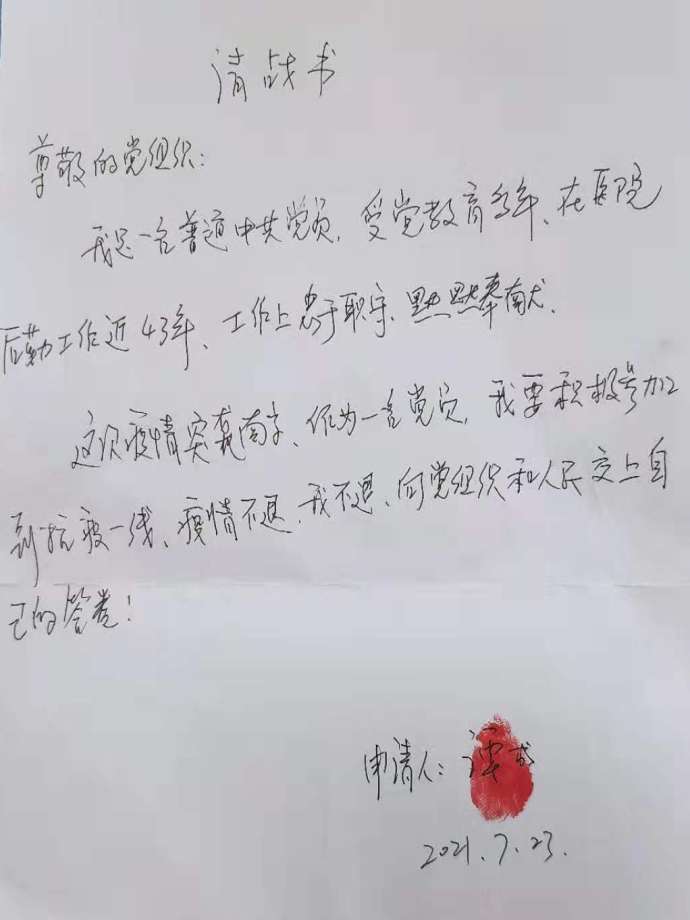 请战书
尊敬的党组织：
我是一名普通中共党员，受党教育多年、在医院
后勤工作近43年、工作上忠于职守、默默奉献.
这次疫情突袭南京、作为一名党员，我要积极参加
到抗疫一线、疫情不退、我不退、向党组织和人民交上自
己的答卷！
申请人：谭
2021.7.23.